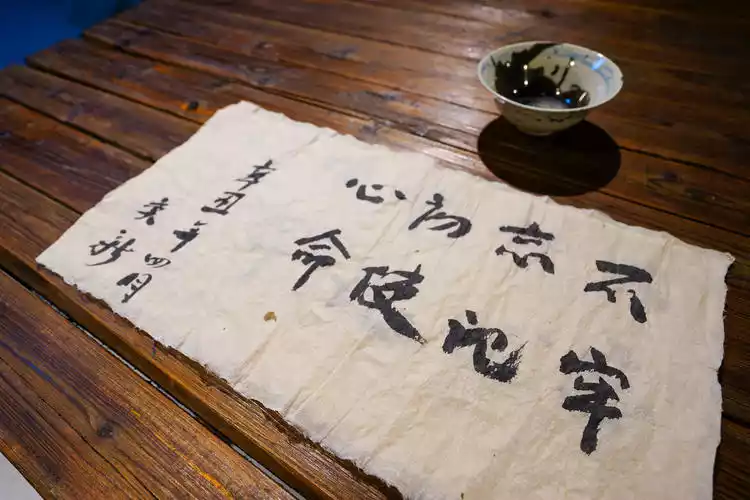 不忘初心
牢记使命
辛丑年四月